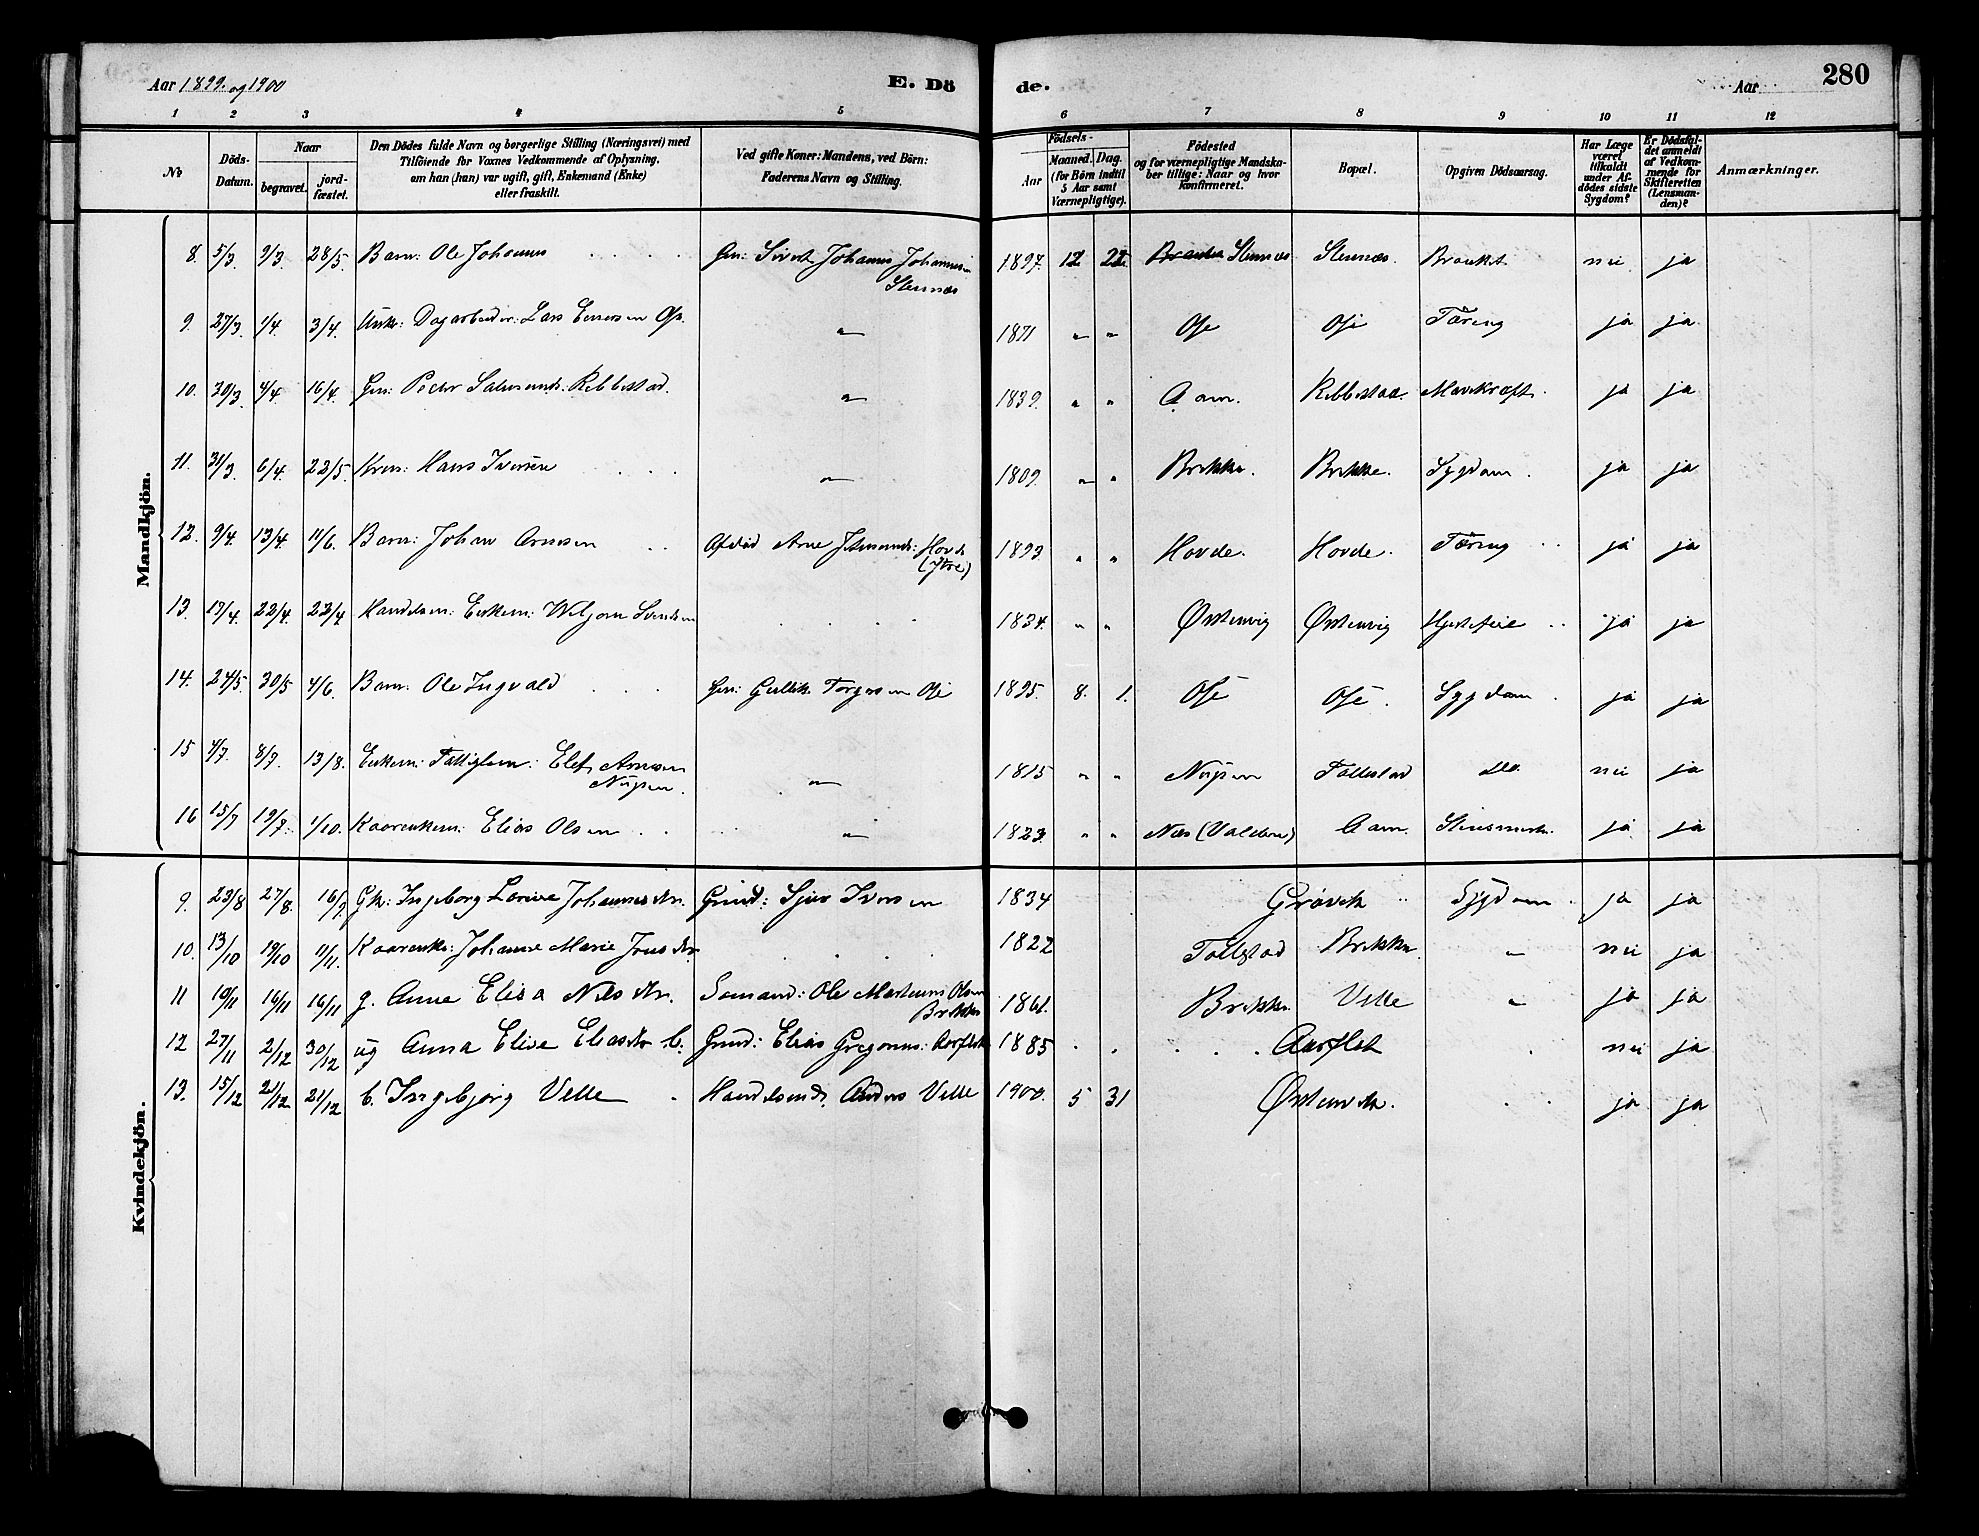 Aar 1899 og 1900 E. Dö de. Aar 280
1 2 3 4 5 6 7 8 9 10 11 12
No
Döds-Datum.
Naar
begravet.
jord-fæstet.
Den Dödes fulde Navn og borgerlige Stilling (Næringsvei) med
Tilföiende for Voxnes Vedkommende af Oplysning,
om han (hun) var ugift, gift, Enkemand (Enke)
eller fraskilt.
Ved gifte Koner: Mandens, ved Börn:
Faderens Navn og Stilling.
Födsels-
Aar
Maaned. Dag.
(for Börn indtil
5 Aar samt
Værnepligtige).
Födested
og for værnepligtige Mandska-
ber tillige: Naar og hvor
konfirmeret.
Bopæl.
Opgiven Dödsaarsag.
Har Læge
været
tilkaldt
under Af-
dödes sidste
Sygdom?
Er Dödsfal-
det anmeldt
af Vedkom-
mende for
Skifteretten
(Lensman-
den)?
Anmærkninger.
Mandkjön.
8. 5/3. 9/3. 28/5. Barn: Ole Johannes Gm: Sivert Johannes Johannessen Stennæs 1897. 12 22 Stennæs Stennæs. Brækt nei ja
9. 27/3. 1/4. 3/4. Dagarbeider: Lars Ose " 1871 " " Ose Ose Tæring ja ja
10. 30/3. 4/4. 16/4. Gm: Peder Ribbestad. " 1839. " " Aam. Ribbestad. Marvkræft. ja ja
11. 31/3. 6/4. 22/5. Hans Iversen " 1809. " " Brekke. Brekke. Sygdom. ja ja
12. 9/4. 13/4. 11/6. Barn: Johan Arnesen Afdød Arne Hovde (Ytre) 1893 " " Hovde. Hovde. Tæring ja ja
13. 17/4. 22/4. 22/4 Handelsm: Enkem: 1834. " " Østenvig Østenvig Hjertefeil ja ja
14. 24/5. 30/5 4/6. Barn: Ole Ingvald Gm: Gullik Torgersen Ose 1895. 8. 1. Ose Ose. Sygdom ja ja
15 4/7. 8/7. 13/8. Enkem: Fattiglem: Elef Arnesen 1815 " " Follestad do. nei ja
16 15/7 19/7. 1/10. Kaarenkem: Elias Olsen " 1823. " " Næs (Valderø) Aam. ja ja
Kvindekjön.
9. 23/8 27/8. 16/9. Gk: Ingeborg Johannesdtr. Grmd: Sjur Iversen 1834 Grøvik Sygdom ja ja
10. 13/10 19/10 11/11. Kaarenke: Johanne Marie Jonsdtr. 1822 Follestad Brekke. " nei ja
11 10/11 16/11 16/11 g. Anne Elisa Nilsdtr. Sømand: Ole Martinus Olsen Brekke 1861. Brekke Velle " ja ja
12 27/11 2/12 30/12 ug Anna Elise Eliasdtr b. Grmd: Elias Gregorius: Aarflot 1885 Aarflot nei ja
13. 15/12 21/12 21/12 b. Ingebjørg Velle Handelsmd. Anders Velle 1900. 5 31 Østenvik. ja ja